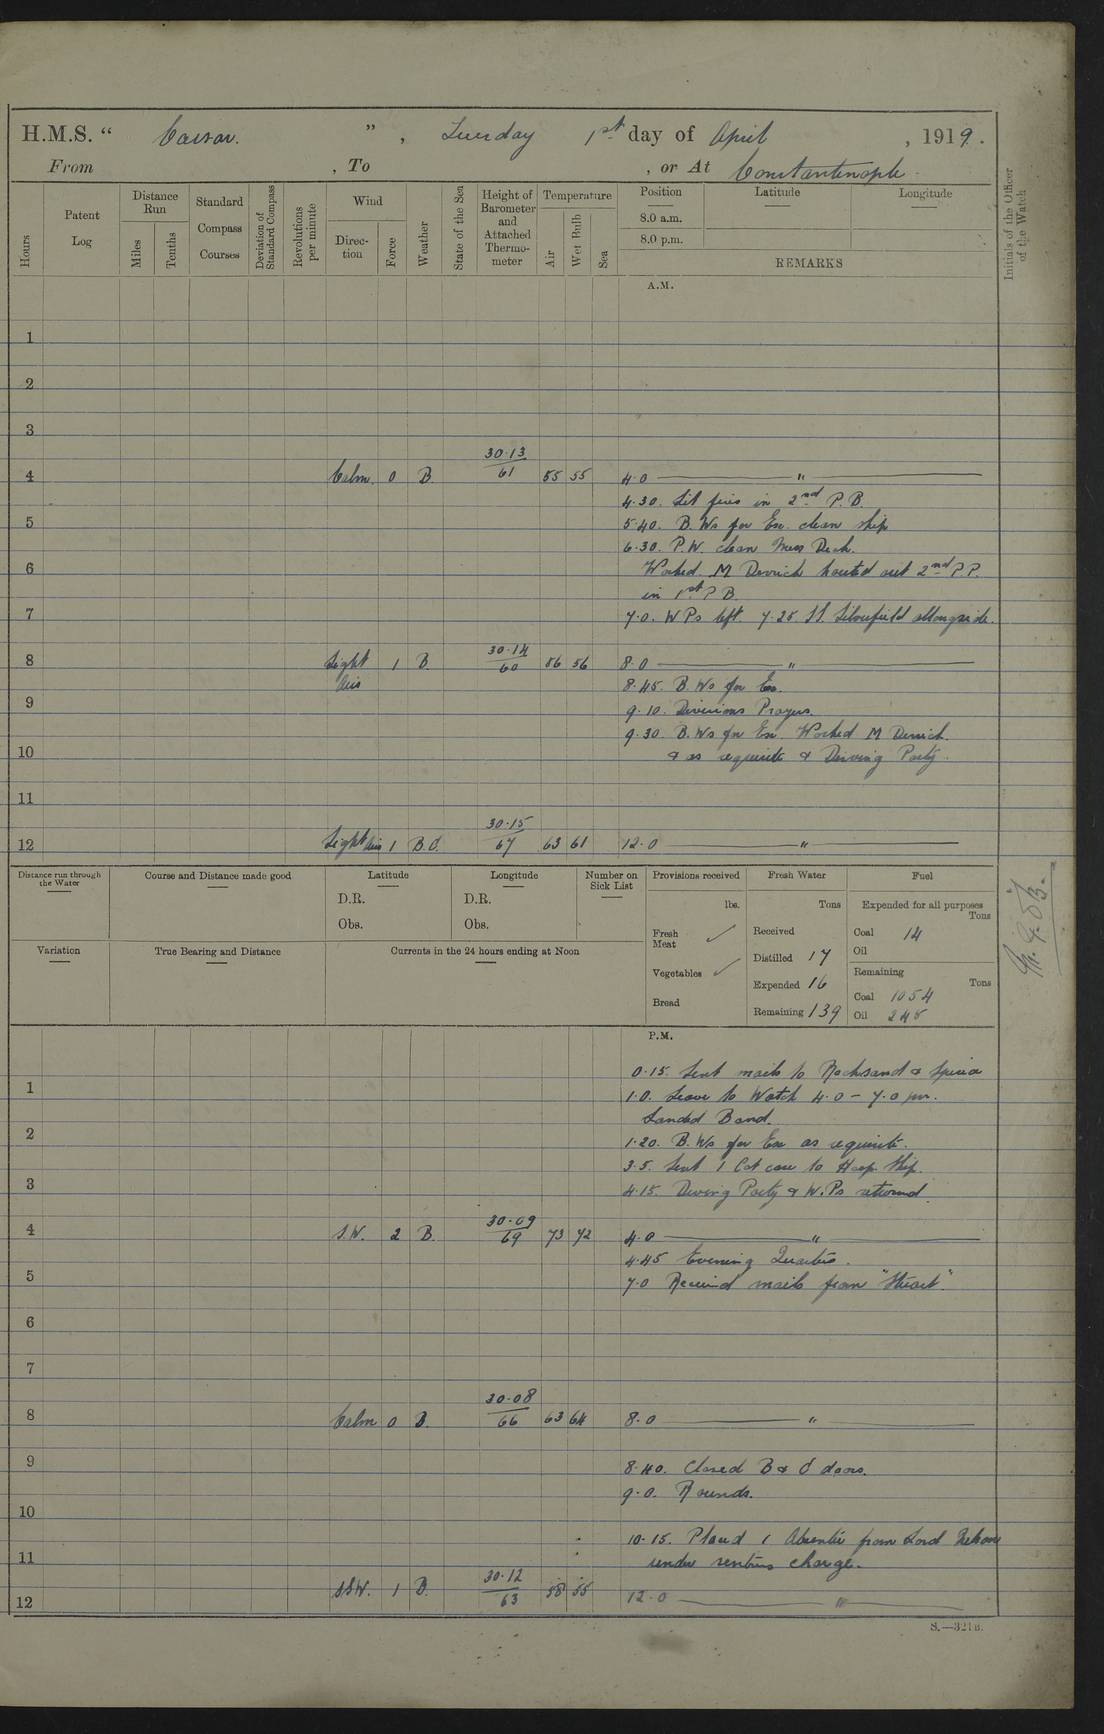 H.M.S. “ Caesar. ” , Tuesday 1st day of April , 1919.
From , To , or At Constantinople.
Hours
Patent Log
Distance Run
Miles
Tenths
Standard Compass Courses
Deviation of Standard Compass
Revolutions per minute
Wind
Direc-tion
Force
Weather
State of the Sea
Height of Barometer and Attached Thermo-meter
Temperature
Air
Wet Bulb
Sea
Position
8.0 a.m.
8.0 p.m.
Latitude
Longitude
REMARKS
Initials of the Officer of the Watch
A.M.
1
2
3
4 Calm. 0 B. 30.13 61 55 55 4.0 "
4.30. Lit fires in 2nd P.B.
5 5.40. B.Ws for Ex. clean ship
6.30. P.W. clean Mess Deck.
6 Worked M Derrick hoisted out 2nd P.P.
in 1st P B.
7 7.0. W Ps left. 7.25. SS. Silverfield allongside.
8 Light Airs 1 B. 30.14 60 56 56 8.0 "
8.45. B.Ws for Ex.
9 9.10. Divisions Prayers.
9.30. B.Ws for Ex. Worked M Derrick.
10 & as requisite & Diving Party.
11
12 Light Airs 1 B.C. 30.15 67 63 61 12.0 "
Distance run through the Water
Course and Distance made good
Latitude
D.R.
Obs.
Longitude
D.R.
Obs.
Number on Sick List
Provisions received
lbs.
Fresh Meat ✓
Vegetables ✓
Bread
Fresh Water
Tons
Received
Distilled 17
Expended 16
Remaining 139
Fuel
Expended for all purposes
Tons
Coal 14
Oil
Remaining
Tons
Coal 1054
Oil 245
Variation
True Bearing and Distance
Currents in the 24 hours ending at Noon
P.M.
0.15. Sent mails to & Spirea
1 1.0. Leave to Watch 4.0 – 7.0 pm.
Landed Band.
2 1.20. B.Ws for Ex as requisite.
3.5. Sent 1 Cot case to Hosp. Ship.
3 4.15. Diving Party & W.Ps returned.
4 S.W. 2 B. 30.09 69 73 72 4.0 "
4.45 Evening Quarters.
5 7.0 Received mails from "Stuart".
6
7
8 Calm 0 B. 30.08 66 63 64 8.0 "
9 8.40. Closed B & C doors.
9.0. Rounds.
10
10.15. Placed 1 Absentee from Lord Nelson
11 under sentries charge.
12 SSW. 1 B. 30.12 63 58 55 12.0 "
S.—321B.